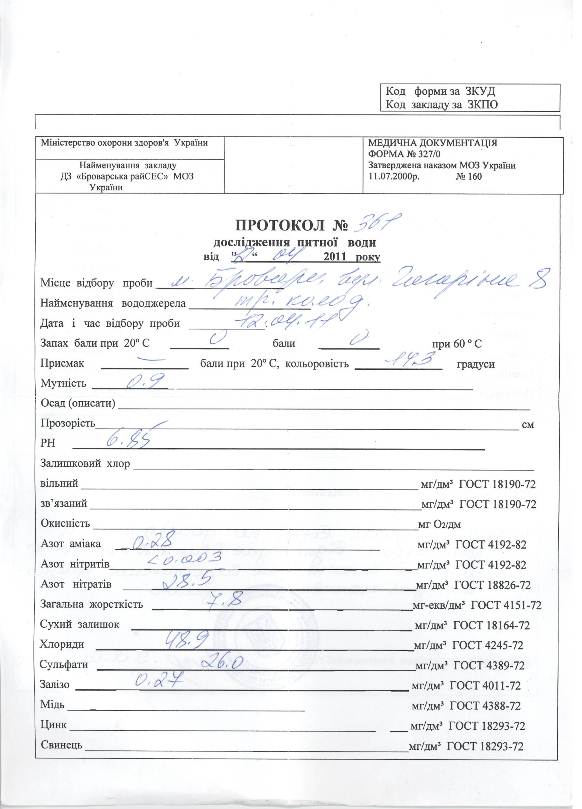 Код форми за ЗКУД
Код закладу за ЗКПО
Міністерство охорони здоров'я України
Найменування закладу
ДЗ «Броварська райСЕС» МОЗ
України
МЕДИЧНА ДОКУМЕНТАЦІЯ
ФОРМА № 327/0
Затверджена наказом МОЗ України
11.07.2000р. № 160
ПРОТОКОЛ №
дослідження питної води
від " " 04 2011 року
Місце відбору проби м. Бровари, вул. Гагаріна 8
Найменування вододжерела тр. колод.
Дата і час відбору проби 12.04.11
Запах бали при 20° С 0 бали 0 при 60 ° С
Присмак — бали при 20° С, кольоровість 14,3 градуси
Мутність 0.9
Осад (описати)
Прозорість см
РН 6.85
Залишковий хлор
вільний мг/дм³ ГОСТ 18190-72
зв'язаний мг/дм³ ГОСТ 18190-72
Окисність мг О2/дм
Азот аміака 0.28 мг/дм³ ГОСТ 4192-82
Азот нітритів <0.003 мг/дм³ ГОСТ 4192-82
Азот нітратів 28.5 мг/дм³ ГОСТ 18826-72
Загальна жорсткість 7.8 мг-екв/дм³ ГОСТ 4151-72
Сухий залишок мг/дм³ ГОСТ 18164-72
Хлориди 48.9 мг/дм³ ГОСТ 4245-72
Сульфати 26.0 мг/дм³ ГОСТ 4389-72
Залізо 0.27 мг/дм³ ГОСТ 4011-72
Мідь мг/дм³ ГОСТ 4388-72
Цинк мг/дм³ ГОСТ 18293-72
Свинець мг/дм³ ГОСТ 18293-72